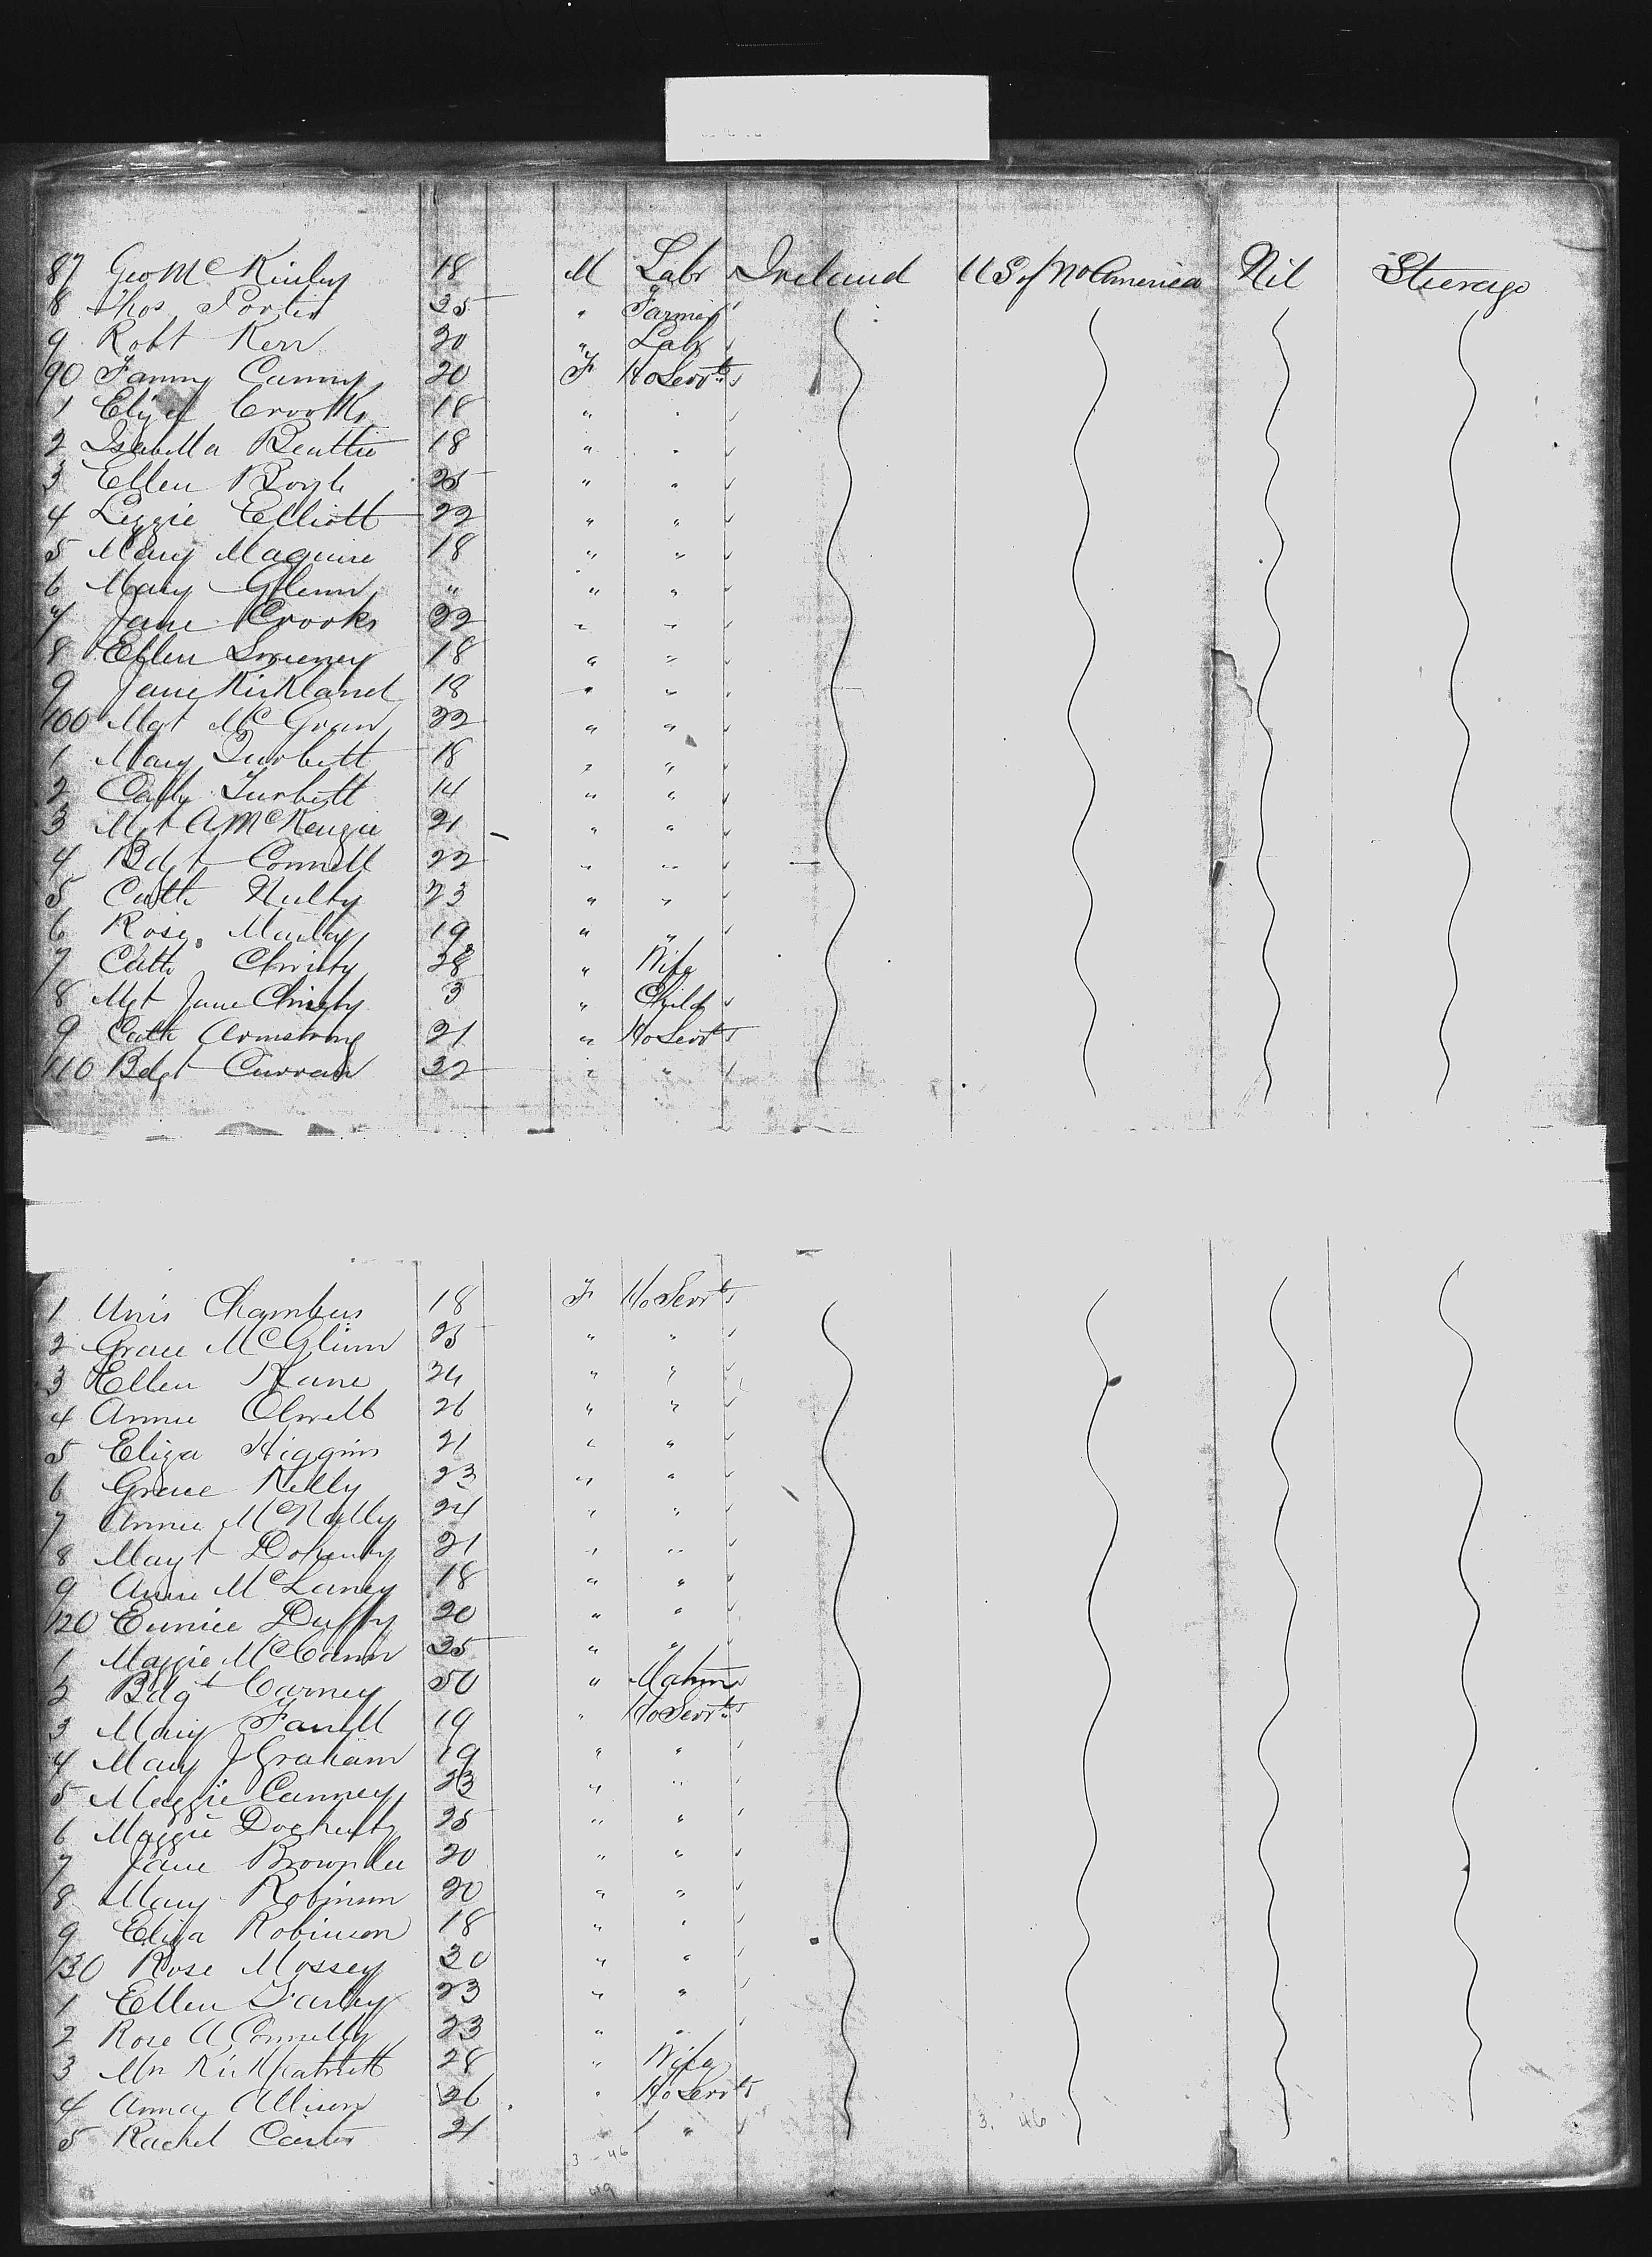 87 Geo McKinley 18 M Labr Ireland U S of No America Nil Steerage
8 Thos Porter 35 " Farmer
9 Robt Kerr 20 " Labr
90 Fanny Canny 20 F Ho Servts
1 Eliza Crooks 18 " "
2 Isabella Beattie 18 " "
3 Ellen Boyle 25 " "
4 Lizzie Elliott 22 " "
5 Mary Maguire 18 " "
6 Mary Glenn " " "
7 Jane Crooks 22 " "
8 Ellen Sweeney 18 " "
9 Jane Kirkland 18 " "
100 Mgt McGran 22 " "
1 Mary Turbett 18 " "
2 Cath Turbett 14 " "
3 Mgt A McKenzie 21 " "
4 Bdgt Connell 22 " "
5 Cath Nulty 23 " "
6 Rose 19 " "
7 Cath Christy 28 " Wife
8 Mgt Jane Christy 3 " Child
9 Cath Armstrong 21 " Ho Servts
110 Bdgt Curran 32 " "
1 Unis Chambers 18 F Ho Servts
2 Grace McGlinn 25 " "
3 Ellen Kane 24 " "
4 Annie Olwell 26 " "
5 Eliza Higgins 21 " "
6 Grace Kelly 23 " "
7 Annie McNally 24 " "
8 Magt Doherty 21 " "
9 Anne 18 " "
120 Eunice Duffy 20 " "
1 Maggie McCann 35 " "
2 Bdgt Carney 50 " Matron
3 Mary Farrell 19 " Ho Servts
4 Mary J Graham 19 " "
5 Maggie Canney 23 " "
6 Maggie Docherty 25 " "
7 Jane Brownlee 20 " "
8 Mary Robinson 20 " "
9 Eliza Robinson 18 " "
130 Rose Mossey 30 " "
1 Ellen Farley 23 " "
2 Rose A Connelly 23 " "
3 Mrs Kirkpatrick 28 " Wife
4 Anna Allison 26 " Ho Servts
5 Rachel Carter 21 " "
3. 46
3 - 46
49